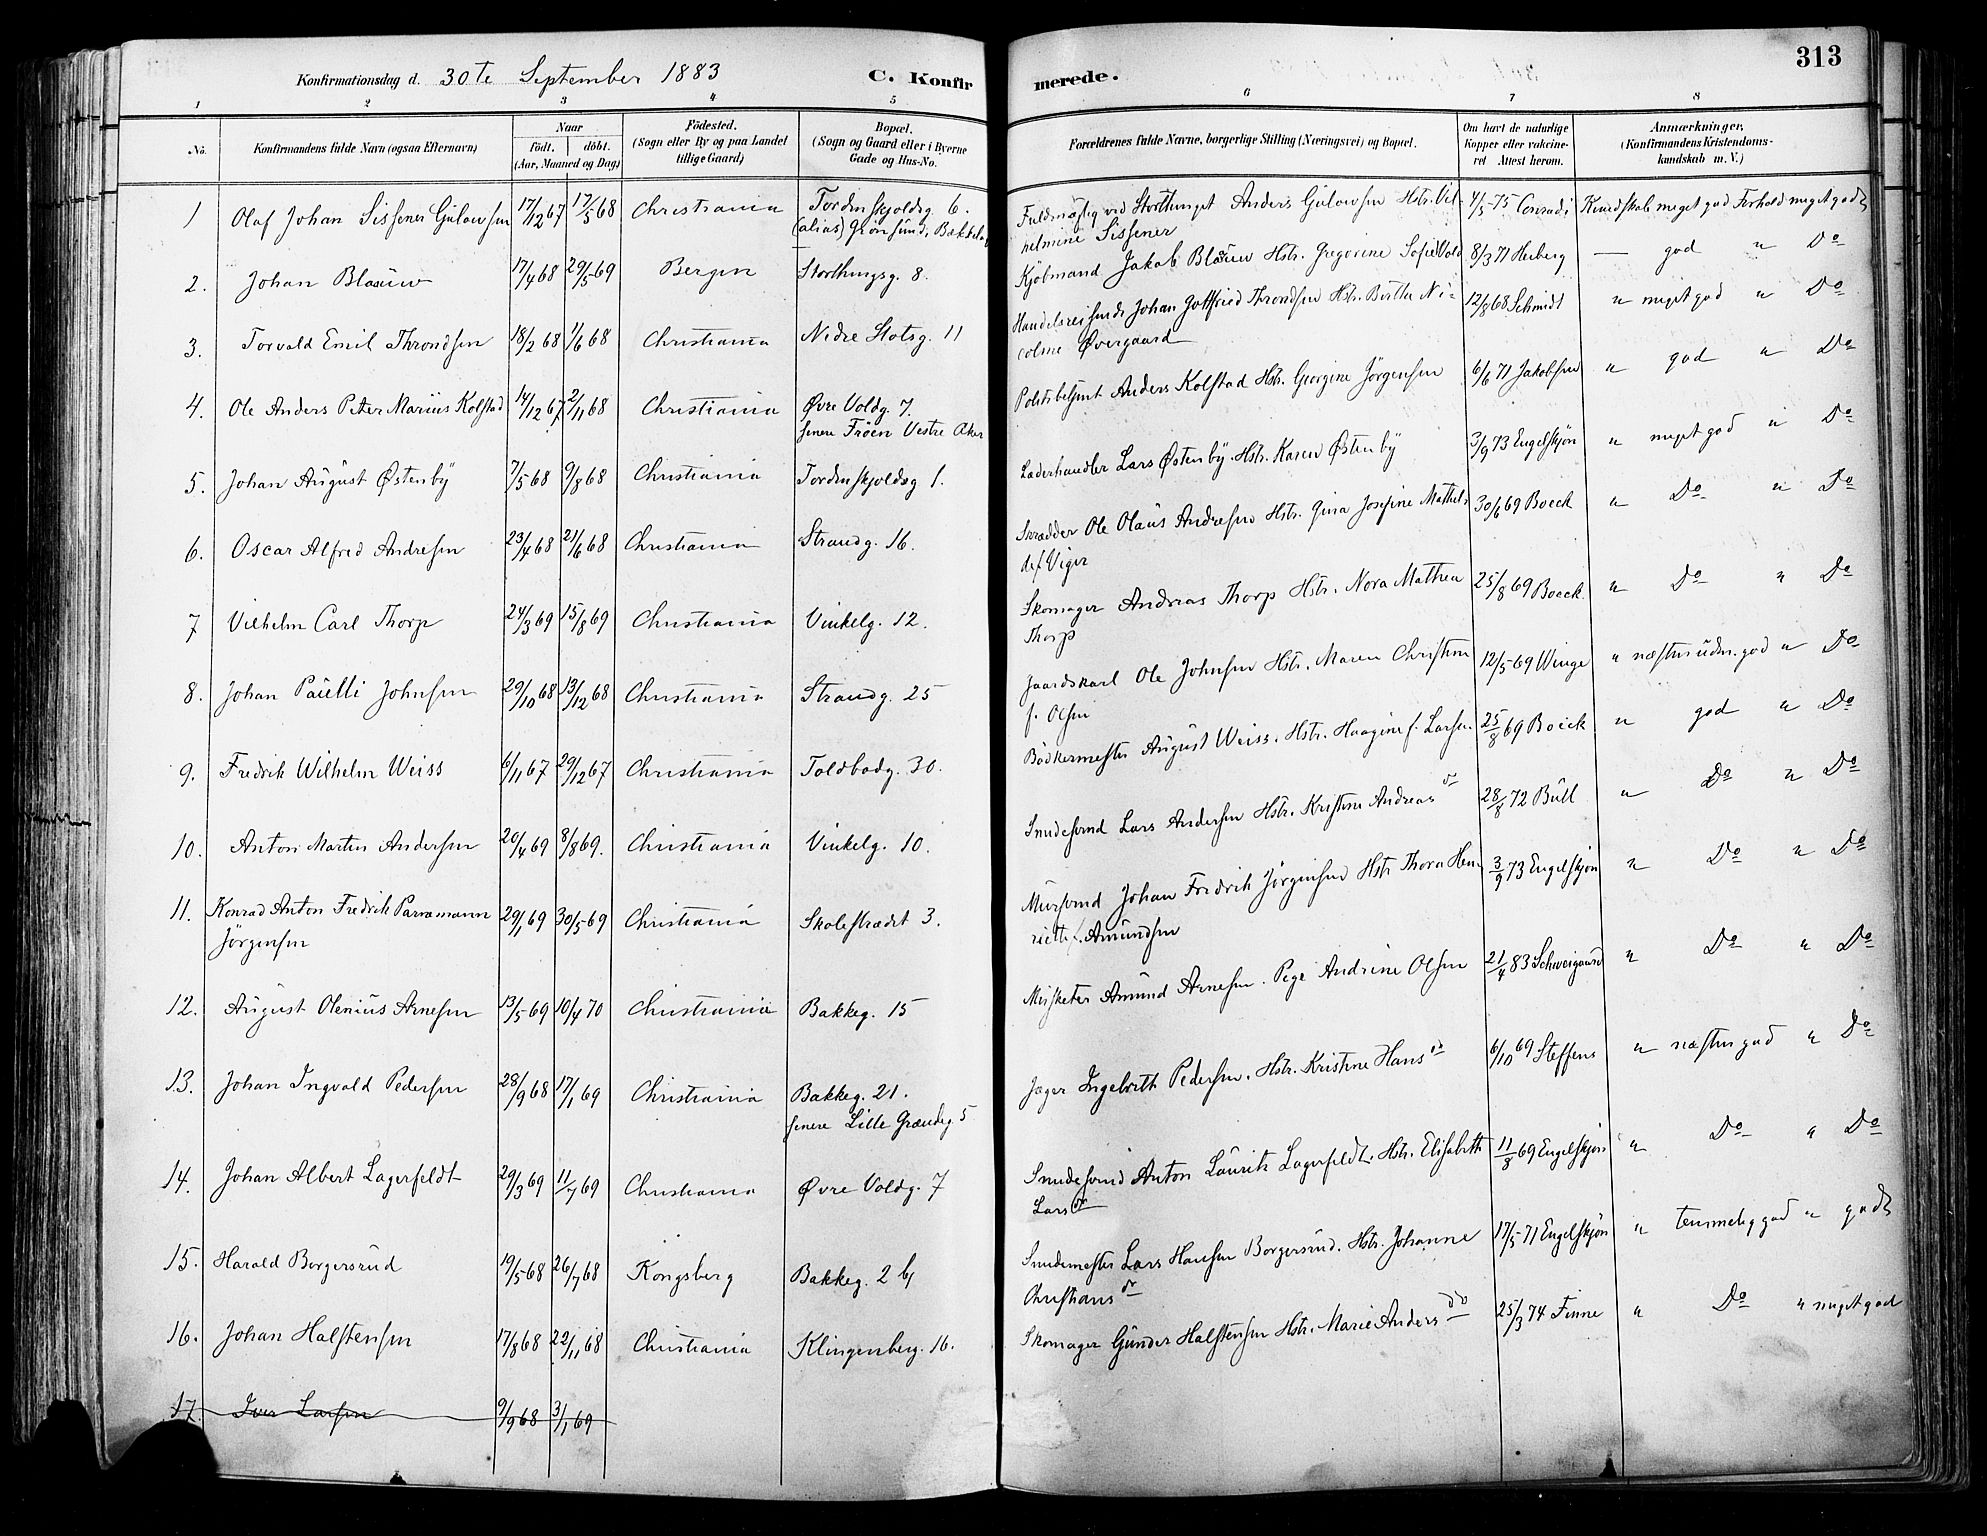 313
Konfirmationsdag d. 30te September 1883 C. Konfirmerede.
1 2 3 4 5 6 7 8
No. Konfirmandens fulde Navn (ogsaa Efternavn) Naar födt. döbt. (Aar, Maaned og Dag) Födested. (Sogn eller By og paa Landet tillige Gaard) Bopæl. (Sogn og Gaard eller i Byerne Gade og Hus-No. Forældrenes fulde Navne, borgerlige Stilling (Næringsvei) og Bopæl. Om havt de naturlige Kopper eller vaccineret Attest herom. Anmærkninger. (Konfirmandens Kristendomskundskab m. V.)
1 Olaf Johan Sissener Gulowsen 17/12 67 17/5 68 Christiania Tordenskjoldsg. 6. (alias) Grønsund, Bækkelag Fuldmægtig ved Storthinget Anders Gulowsen Hstr. Vilhelmine Sissener 4/5 75 Conradi Kundskab meget god Forhold meget godt
2. Johan Blaauw 17/4 68 29/5 69 Bergen Storthingsg. 8. Kjöbmand Jakob Blaauw Hstr. Gregorine Sofie Vold 8/3 71 Heiberg — god " Do
3. Torvald Emil Throndsen 18/2 68 1/6 68 Christiania Nedre Slotsg. 11 Handelsreisende Johan Gottfried Throndsen Hstr. Berthe Nicoline Øvergaard 12/8 68 Schmidt " meget god " Do
4. Ole Anders Peter Marius Kolstad 14/12 67 2/11 68 Christiania Øvre Voldg. 7. senere Fröen Vestre Aker Politibetjent Anders Kolstad Hstr. Georgine Jörgensen 6/6 71 Jakobsen " god " Do
5. Johan August Østenby 7/5 68 9/8 68 Christiania Tordenskjoldsg 1. Læderhandler Lars Østenby. Hstr. Karen Østenby 3/9 73 Engelskjön " meget god " Do
6. Oscar Alfred Andresen 23/4 68 21/6 68 Christiania Strandg. 16. Skrædder Ole Olaus Andresen Hstr. Gina Josefine Mathilde f. Viger 30/6 69 Boeck " Do " Do
7 Vilhelm Carl Thorp 24/3 69 15/8 69 Christiania Vinkelg. 12. Skomager Andreas Thorp Hstr. Nora Mathea Thorp 25/8 69 Boeck. " Do " Do
8. Johan Paulli Johnsen 29/10 68 13/12 68 Christiania Strandg. 25 Gaardskarl Ole Johnsen Hstr. Maren Christine f. Olsen 12/5 69 Winge " næsten udm. god " Do
9. Fredrik Wilhelm Weiss 6/11 67 29/12 67 Christiania Toldbodg. 30. Bödkermester August Weiss. Hstr. Haagine f. Larsen. 25/8 69 Boeck " god " Do
10. Anton Martin Andersen 20/4 69 8/8 69. Christiania Vinkelg. 10. Snedkersvend Lars Andersen Hstr. Kristine Andreasdr 28/8 72 Bull " Do " Do
11. Konrad Anton Fredrik Parnemann Jörgensen 29/1 69 30/5 69 Christiania Skolestrædet 3. Mursvend Johan Fredrik Jörgensen Hstr Thora Henriette f. Amundsen 3/9 73 Engelskjön " Do " Do
12. August Olenius Arnesen 13/5 69 10/4 70 Christiania Bakkeg. 15 Musketer Amund Arnesen. Pige Andrine Olsen 21/4 83 Schweigaard " Do " Do
13. Johan Ingvald Pedersen 28/9 68 17/1 69 Christiania Bakkeg. 21. senere Lille Grændsg. 5 Jæger Ingebreth Pedersen. Hstr. Kristine Hansdr 6/10 69 Steffens " næsten god " Do
14. Johan Albert Lagerfeldt 29/3 69 11/7 69 Christiania Øvre Voldg. 7 Snedkersvend Anton Lauritz Lagerfeldt. Hstr. Elisabeth Larsdr 11/8 69 Engelskjön " Do " Do
15. Harald Borgersrud 19/5 68 26/7 68 Kongsberg Bakkeg. 2 b Snedkermester Lars Hansen Borgersrud. Hstr. Johanne Christiansdr 17/5 71 Engelskjön " temmelig god " godt
16. Johan Halstensen 17/8 68 22/11 68 Christiania Klingenberg. 16. Skomager Gunder Halstensen Hstr. Marie Andersdr 25/3 74 Finne " Do " meget god
17. Iver Larsen 9/9 68 3/1 69